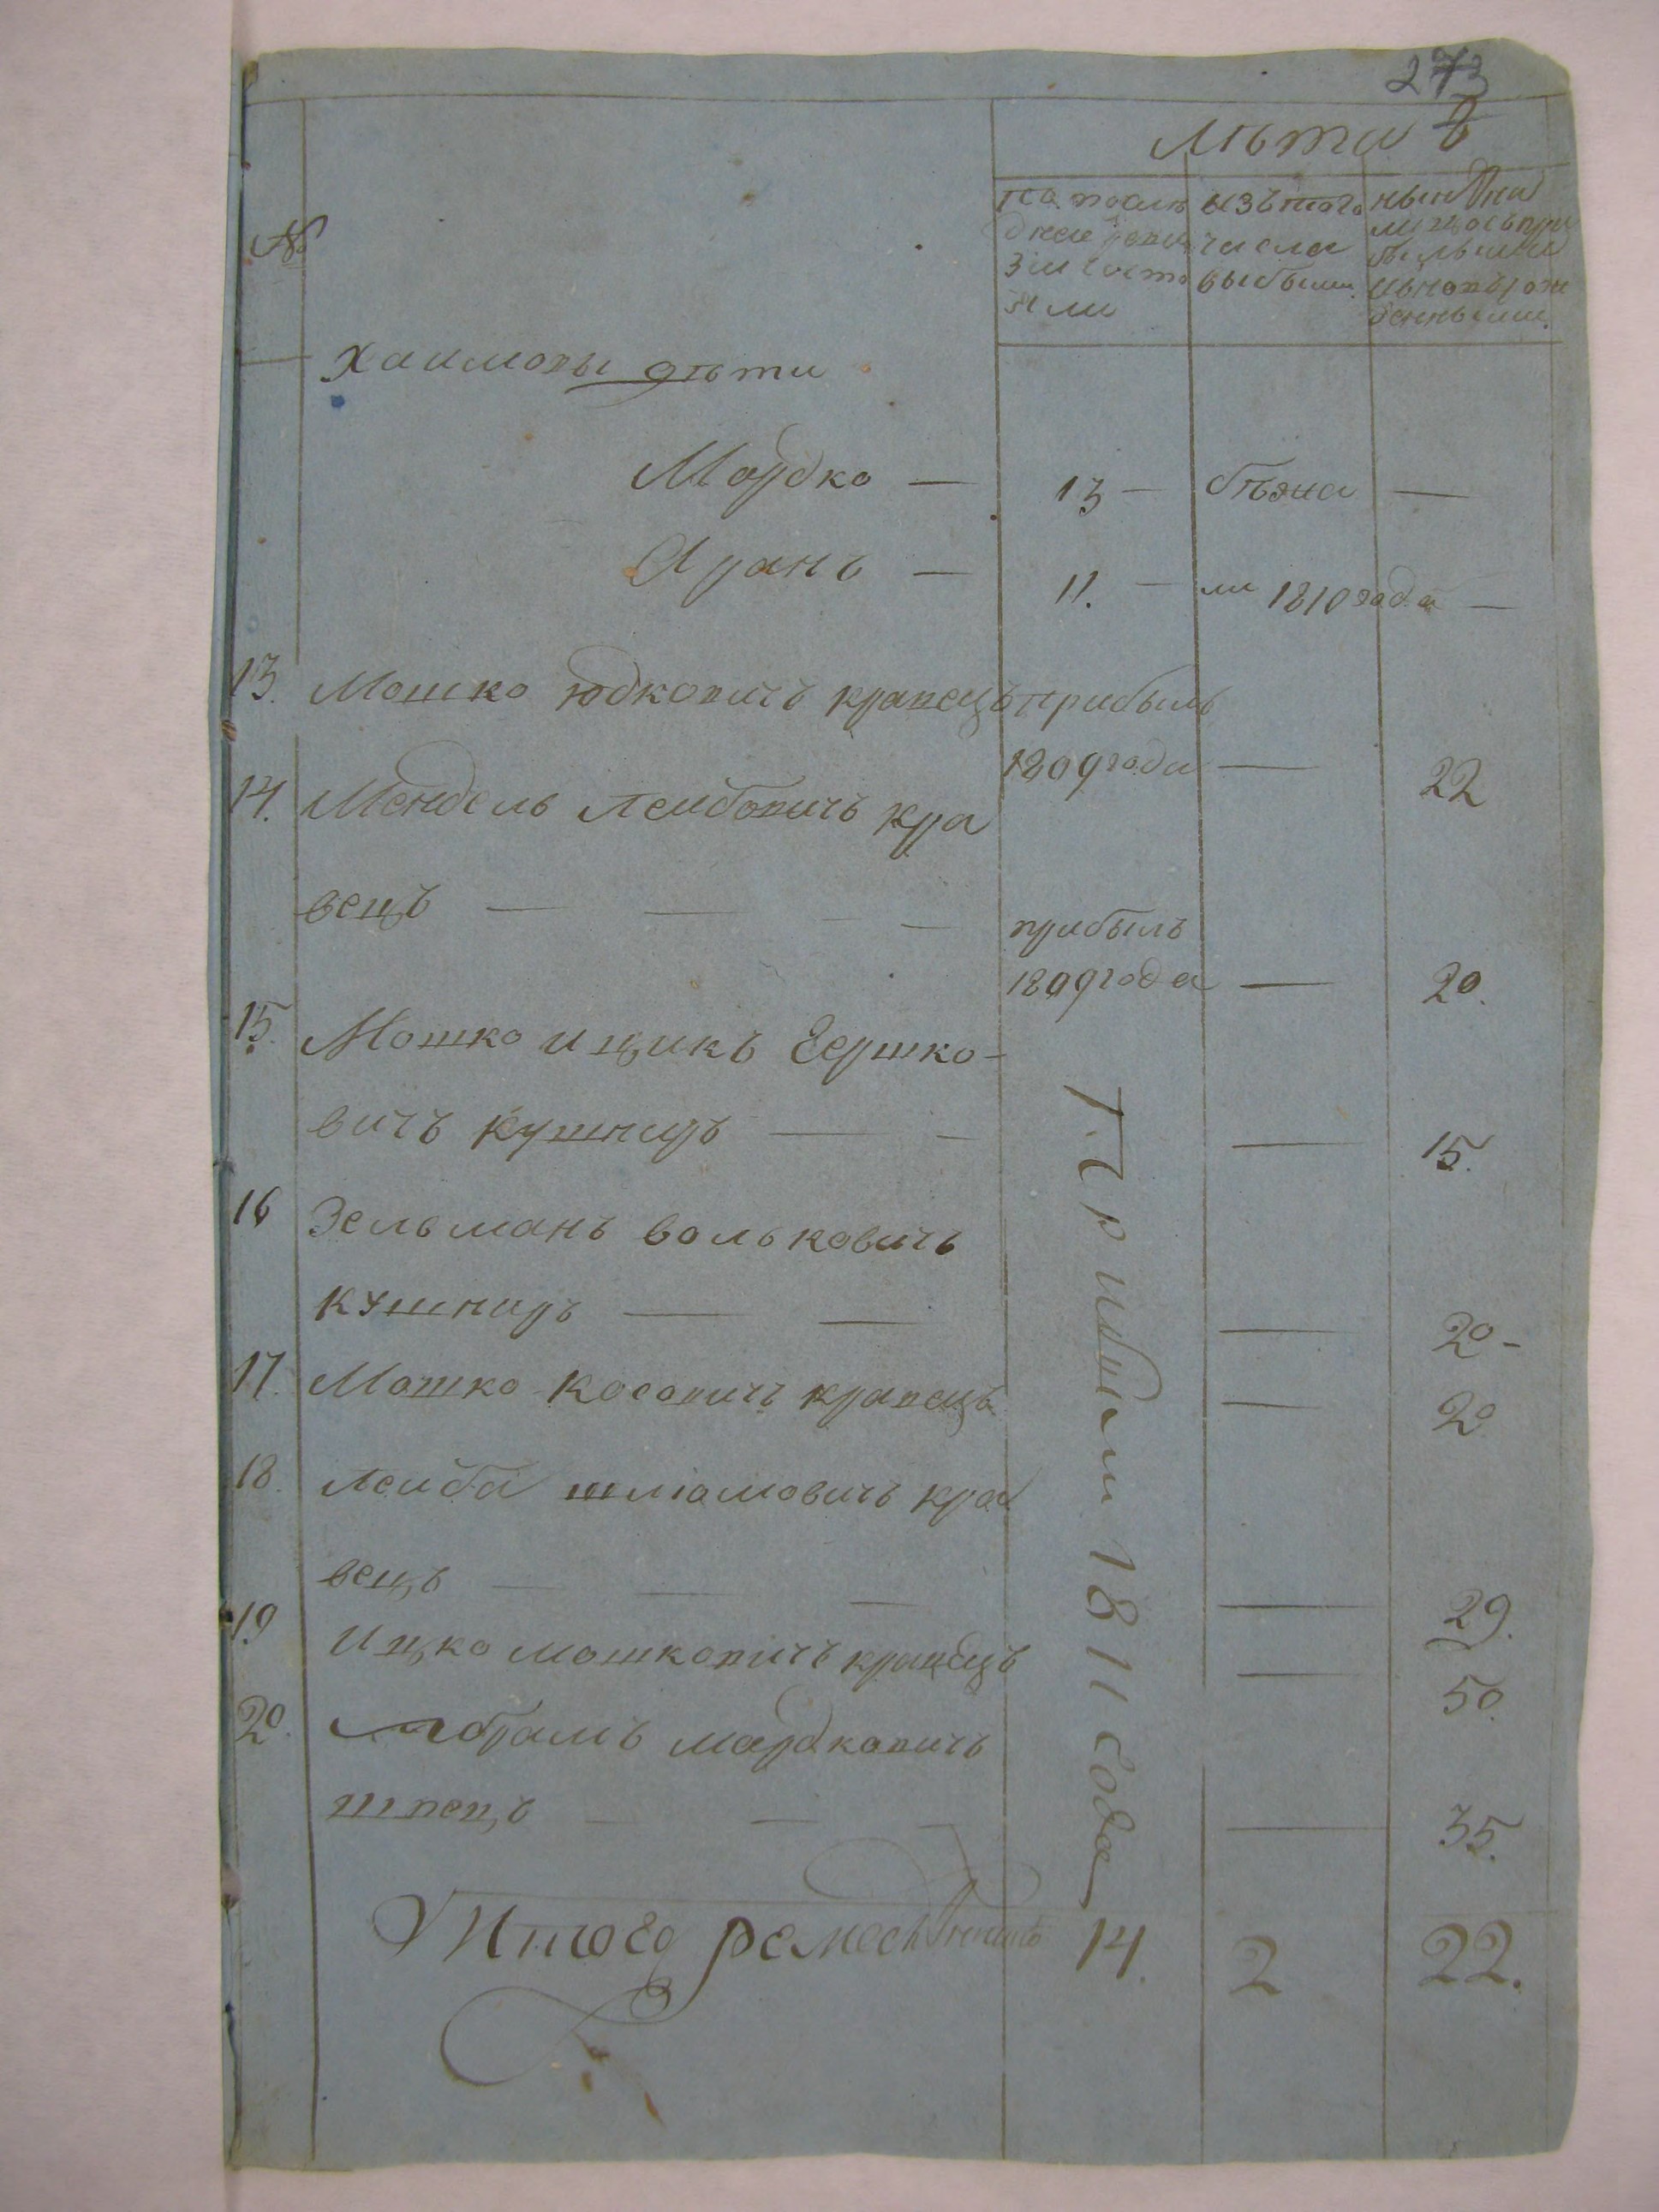 273
Лѣта
№
по послѣ
дней реви
зіи состо
яли
изъ того
числа
выбыли
нынѣ на
лицо съ при
былыми
и новорож
денными.
Хаимовы дѣти
Мордко — 13 — бѣжа —
Аранъ — 11. — ли 1810 года —
13. Мошко Юдковичъ кравецъ прибылъ
1809 года — 22
14. Мендель Лейбовичъ кра
вецъ — — — — прибылъ
1809 года — 20.
15. Мошко Ицикъ Гершко-
вичъ кушниръ — — — 15.
16 Зельманъ Вольковичъ
кушниръ — — — 20 -
17. Мошко Косовичъ кравецъ — 20
18. Лейба Шліомовичъ кра
вецъ — — — — 29.
19 Ицко Мошковичъ кравецъ — 50.
20. Абрамъ Мордковичъ
швецъ — — — — 35.
Прибыли 1811 года
Итого ремесленниковъ 14. 2 22.